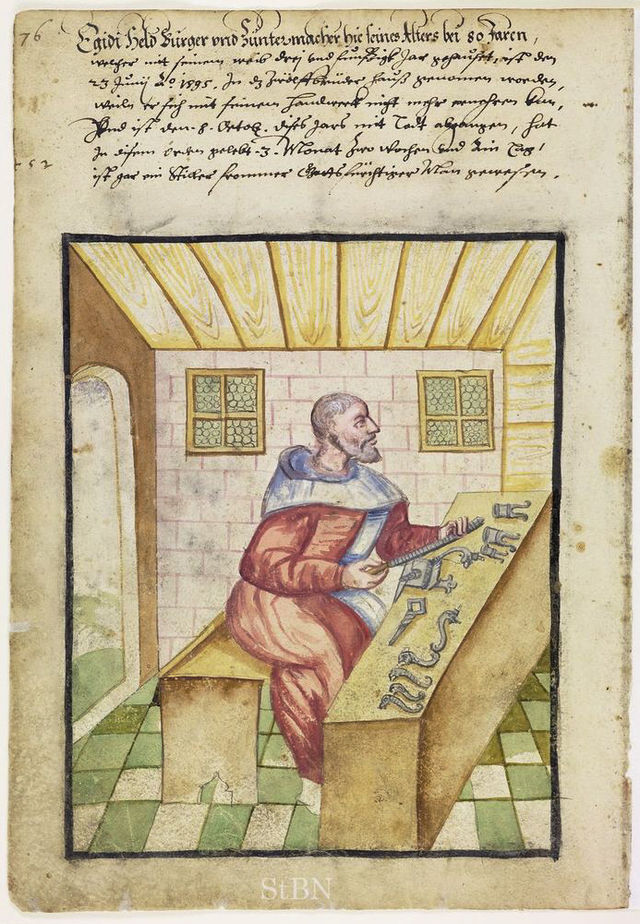 76
Egidi Held Burger vnd Züntenmacher hie seines Alters bei 80 Jaren,
welcher mit seinem weib drei vnd funfzig Jar gehauset, ist den
23 Junij Ao 1595. In dz Zwölfbruder hauß genomen worden,
weiln er sich mit seinem handwerk nicht mehr ernehren kun,
Vnd ist den 8. Octob. dises Jars mit Todt abgangen, hat
In disem orden gelebt 3 Monat zwo wochen vnd Ain Tag,
ist gar ein Stiller frommer Gottsfürchtiger Man gewesen.
52
StBN